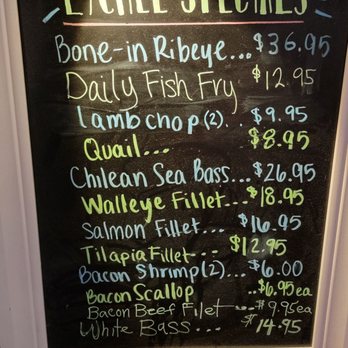 SPECIALS
Bone-in Ribeye...$36.95
Daily Fish Fry $12.95
Lamb chop(2). $9.95
Quail... $8.95
Chilean Sea Bass...$26.95
Walleye Fillet...$18.95
Salmon Fillet... $16.95
Tilapia Fillet... $12.95
Bacon Shrimp(2)...$6.00
Bacon Scallop ..$6.95ea
Bacon Beef Filet...$9.95ea
White Bass... $14.95